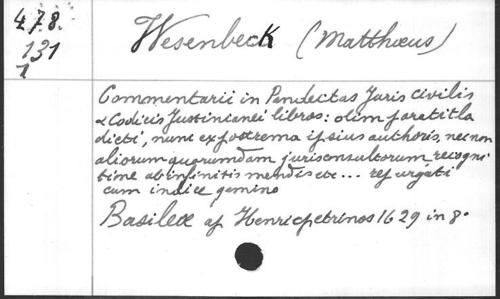 478.
131
1
Wesenbeck (Matthœus)
Commentarii in Pandectas Juris civilis
& Codicis Justinianei libros: olim paratitla
dicti, nunc ex postrema ipsius authoris, nec non
aliorum quorumdam jurisconsultorum recogni
tione ab infinitis mendis etc... repurgati
cum indice gemino
Basileæ ap Henricpetrinos 1629 in 8°